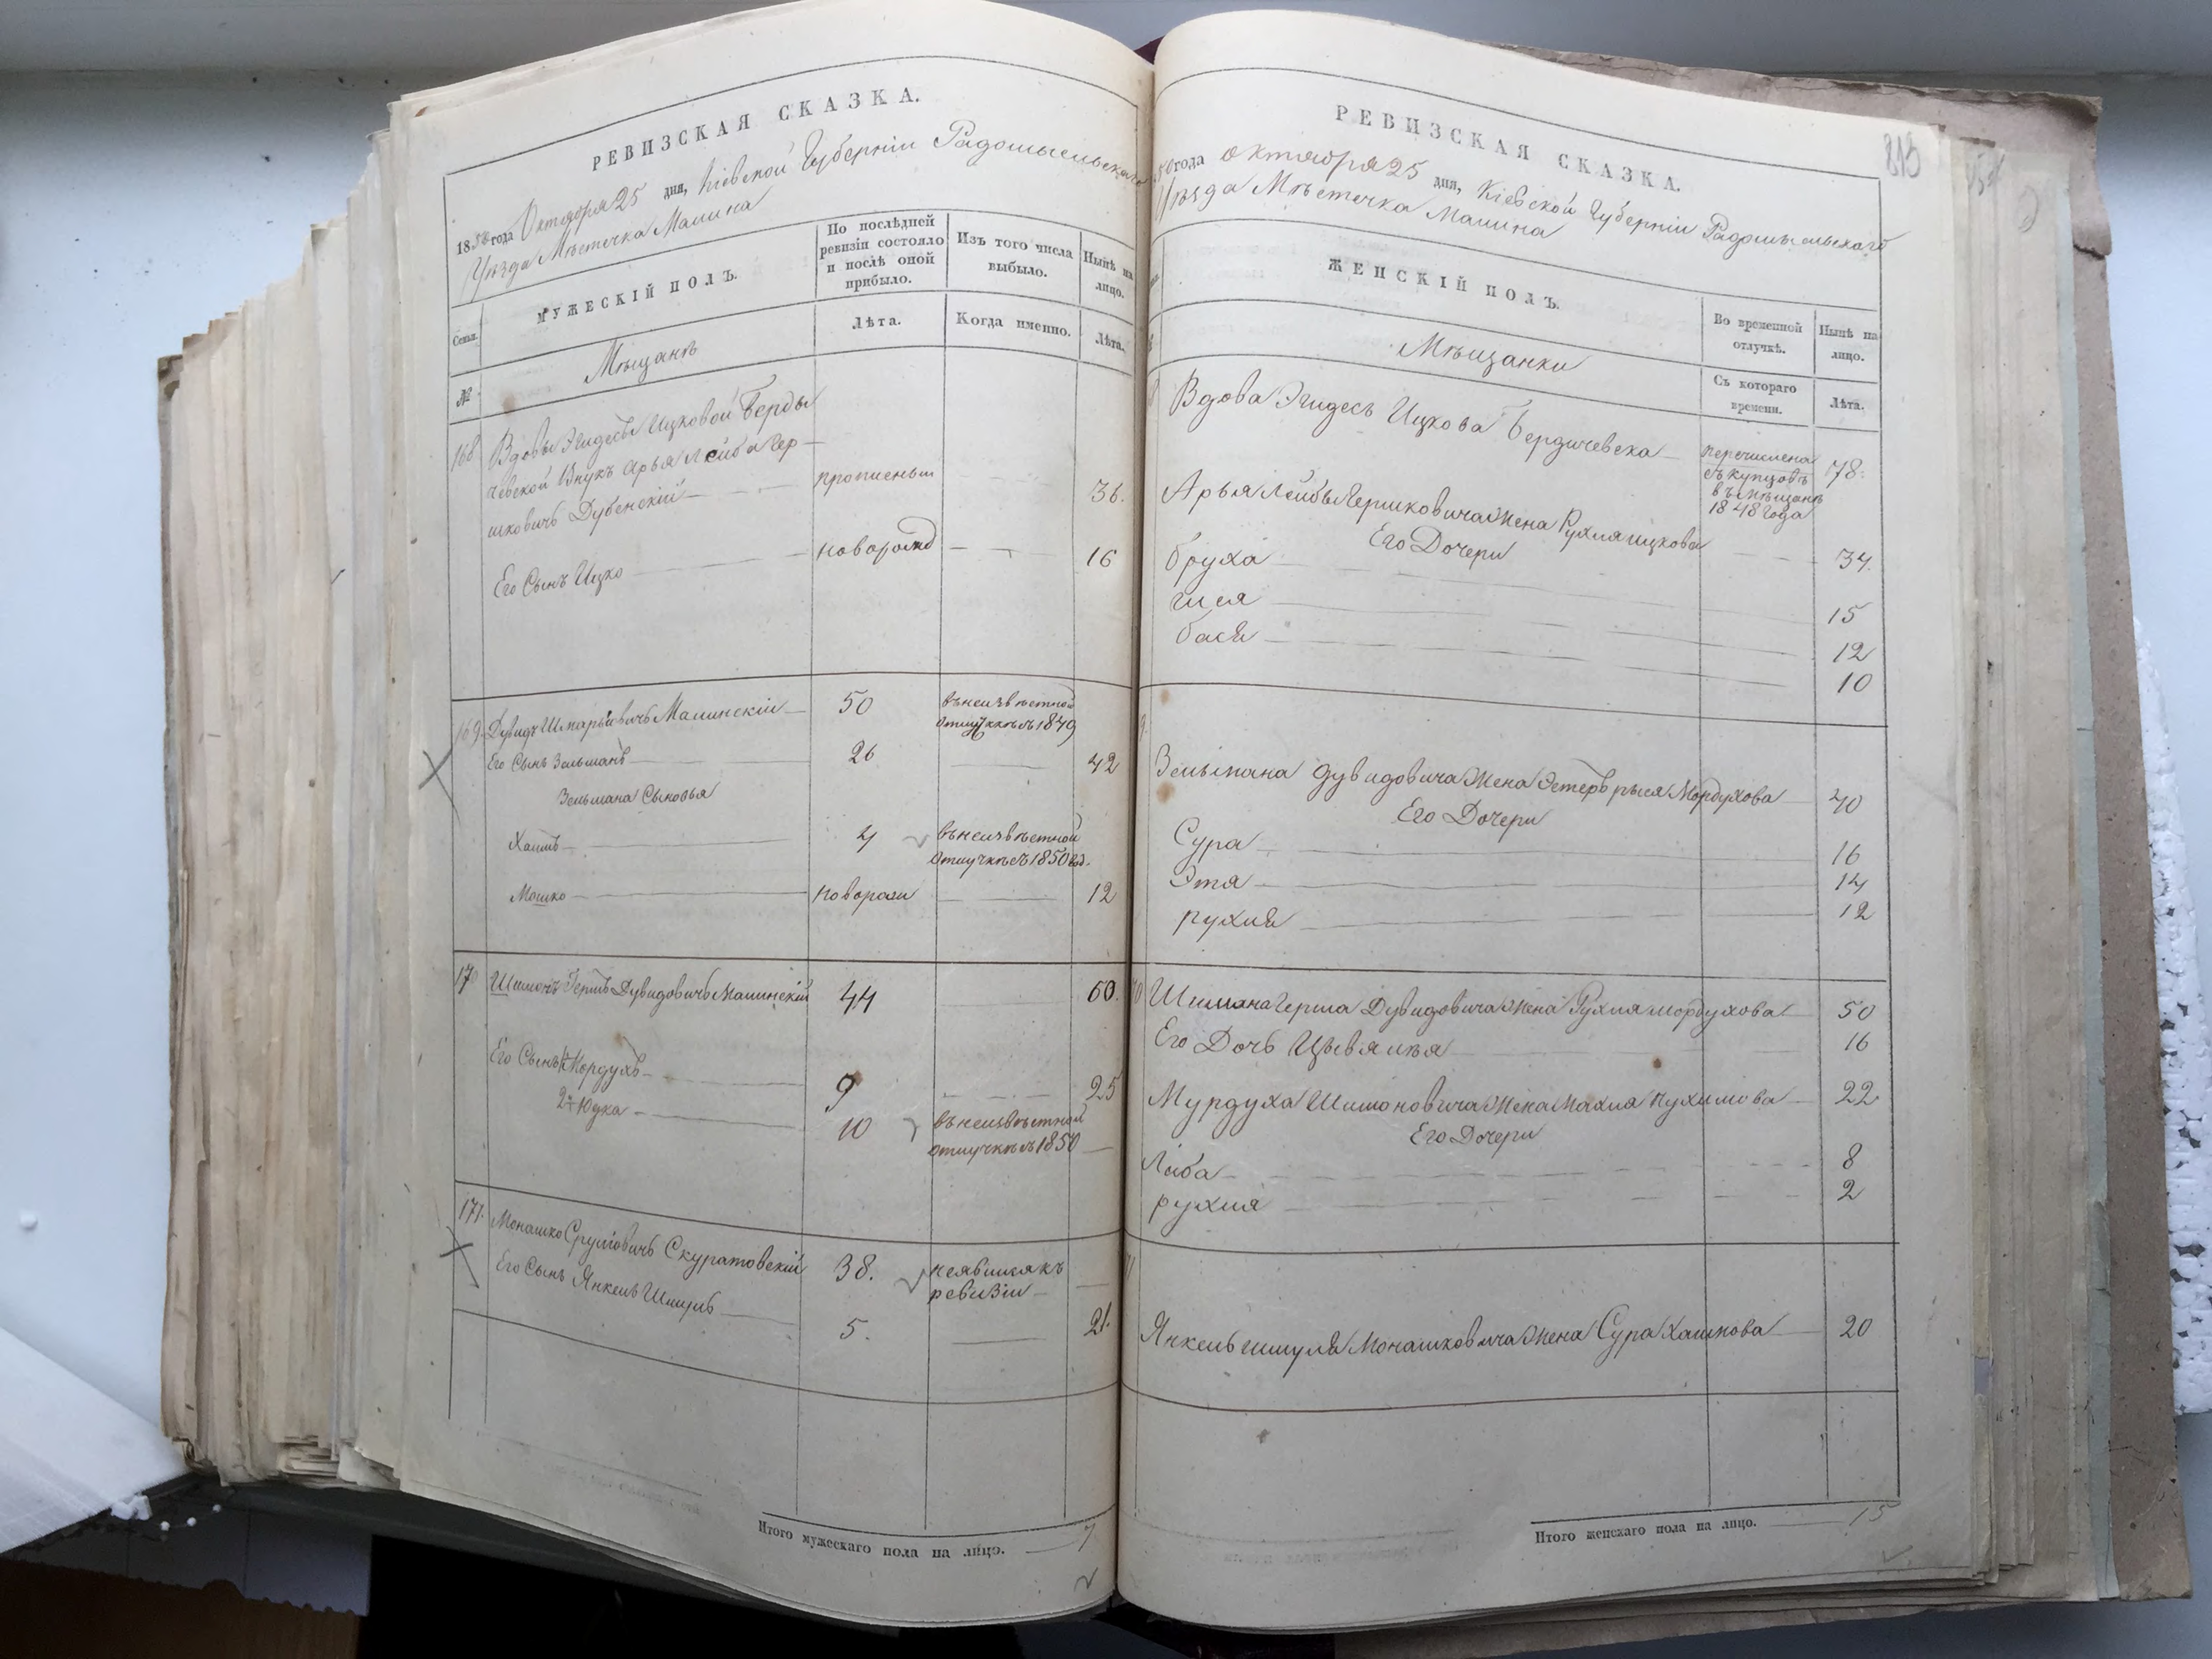 РЕВИЗСКАЯ СКАЗКА.
1850 года Октября 25 дня, Кіевской Губерніи Радомысльскаго
Уѣзда Мѣстечка Малина
Семьи.
МУЖЕСКІЙ ПОЛЪ.
По послѣдней ревизіи состояло и послѣ оной прибыло.
Изъ того числа выбыло.
Нынѣ на лицо.
Лѣта.
Когда именно.
Лѣта.
№
Мѣщанѣ
168 Вдовы Эидесы Ицковой Берды
чевской Внукъ Арья Лейба Гер—
шковичъ Дубенскій — прописный 36.
Его Сынъ Ицко — новорожд — 16
169. Дувидъ Шмарьевичъ Малинскій — 50 въ неизвѣстной
отлучкѣ съ 1849
Его Сынъ Зельманъ — 26 — 42
Зельмана Сыновья
Хаимъ — 4 въ неизвѣстной
отлучкѣ съ 1850 год.
Мошко — новорож — 12
170 Шимонъ Гершъ Дувидовичъ Малинскій 44 — 60.
Его Сынъ 1 Мордухъ — 9 — 25
2й Юдка — 10 въ неизвѣстной
отлучкѣ съ 1850 —
171. Монашко Сруліовичъ Скуратовскій 38. неявился къ
ревизіи —
Его Сынъ Янкель Шмуль — 5. — 21.
Итого мужескаго пола на лицо. — 7
813
РЕВИЗСКАЯ СКАЗКА.
50 года Октября 25 дня, Кіевской Губерніи Радомысльскаго
Уѣзда Мѣстечка Малина
ЖЕНСКІЙ ПОЛЪ.
Во временной отлучкѣ.
Нынѣ на лицо.
Съ котораго времени.
Лѣта.
Мѣщанки
Вдова Эидесъ Ицкова Бердичевска — перечислена
съ купцовъ
въ мѣщанѣ
1848 года 78.
Арья Лейбы Гершковича Жена Рухля Ицкова — 34.
Его Дочери
Бруха — 15
Гися — 12
бася — 10
Зельмана Дувидовича Жена Эстеръ рыся Мордухова 40
Его Дочери
Сура — 16
Этя — 14
рухля — 12
Шимона Герша Дувидовича Жена Рухля Мордухова — 50
Его Дочь Цывя 16
Мурдуха Шимоновича Жена Малия Нухимова — 22
Его Дочери
Либа — 8
рухля — 2
Янкель Шмуля Монашковича Жена Сура Хаимова — 20
Итого женскаго пола на лицо. — 15